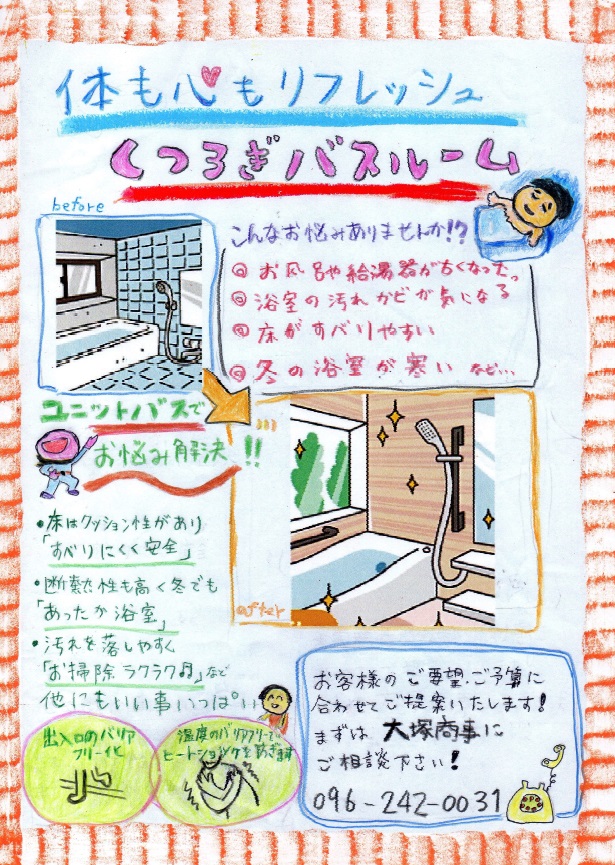 体も心もリフレッシュ
くつろぎバスルーム
before
こんなお悩みありませんか!?
◎お風呂や給湯器が古くなった。
◎浴室の汚れカビが気になる
◎床がすべりやすい
◎冬の浴室が寒い など…
ユニットバスで
お悩み解決!!
・床はクッション性があり
「すべりにくく安全」
・断熱性も高く冬でも
「あったか浴室」
・汚れを落しやすく
「お掃除ラクラク♫」など
他にもいい事いっぱい
after
出入口のバリア
フリー化
温度のバリアフリーで
ヒートショックをふせぎます
お客様のご要望・ご予算に
合わせてご提案いたします!
まずは 大塚商事に
ご相談下さい!
096-242-0031